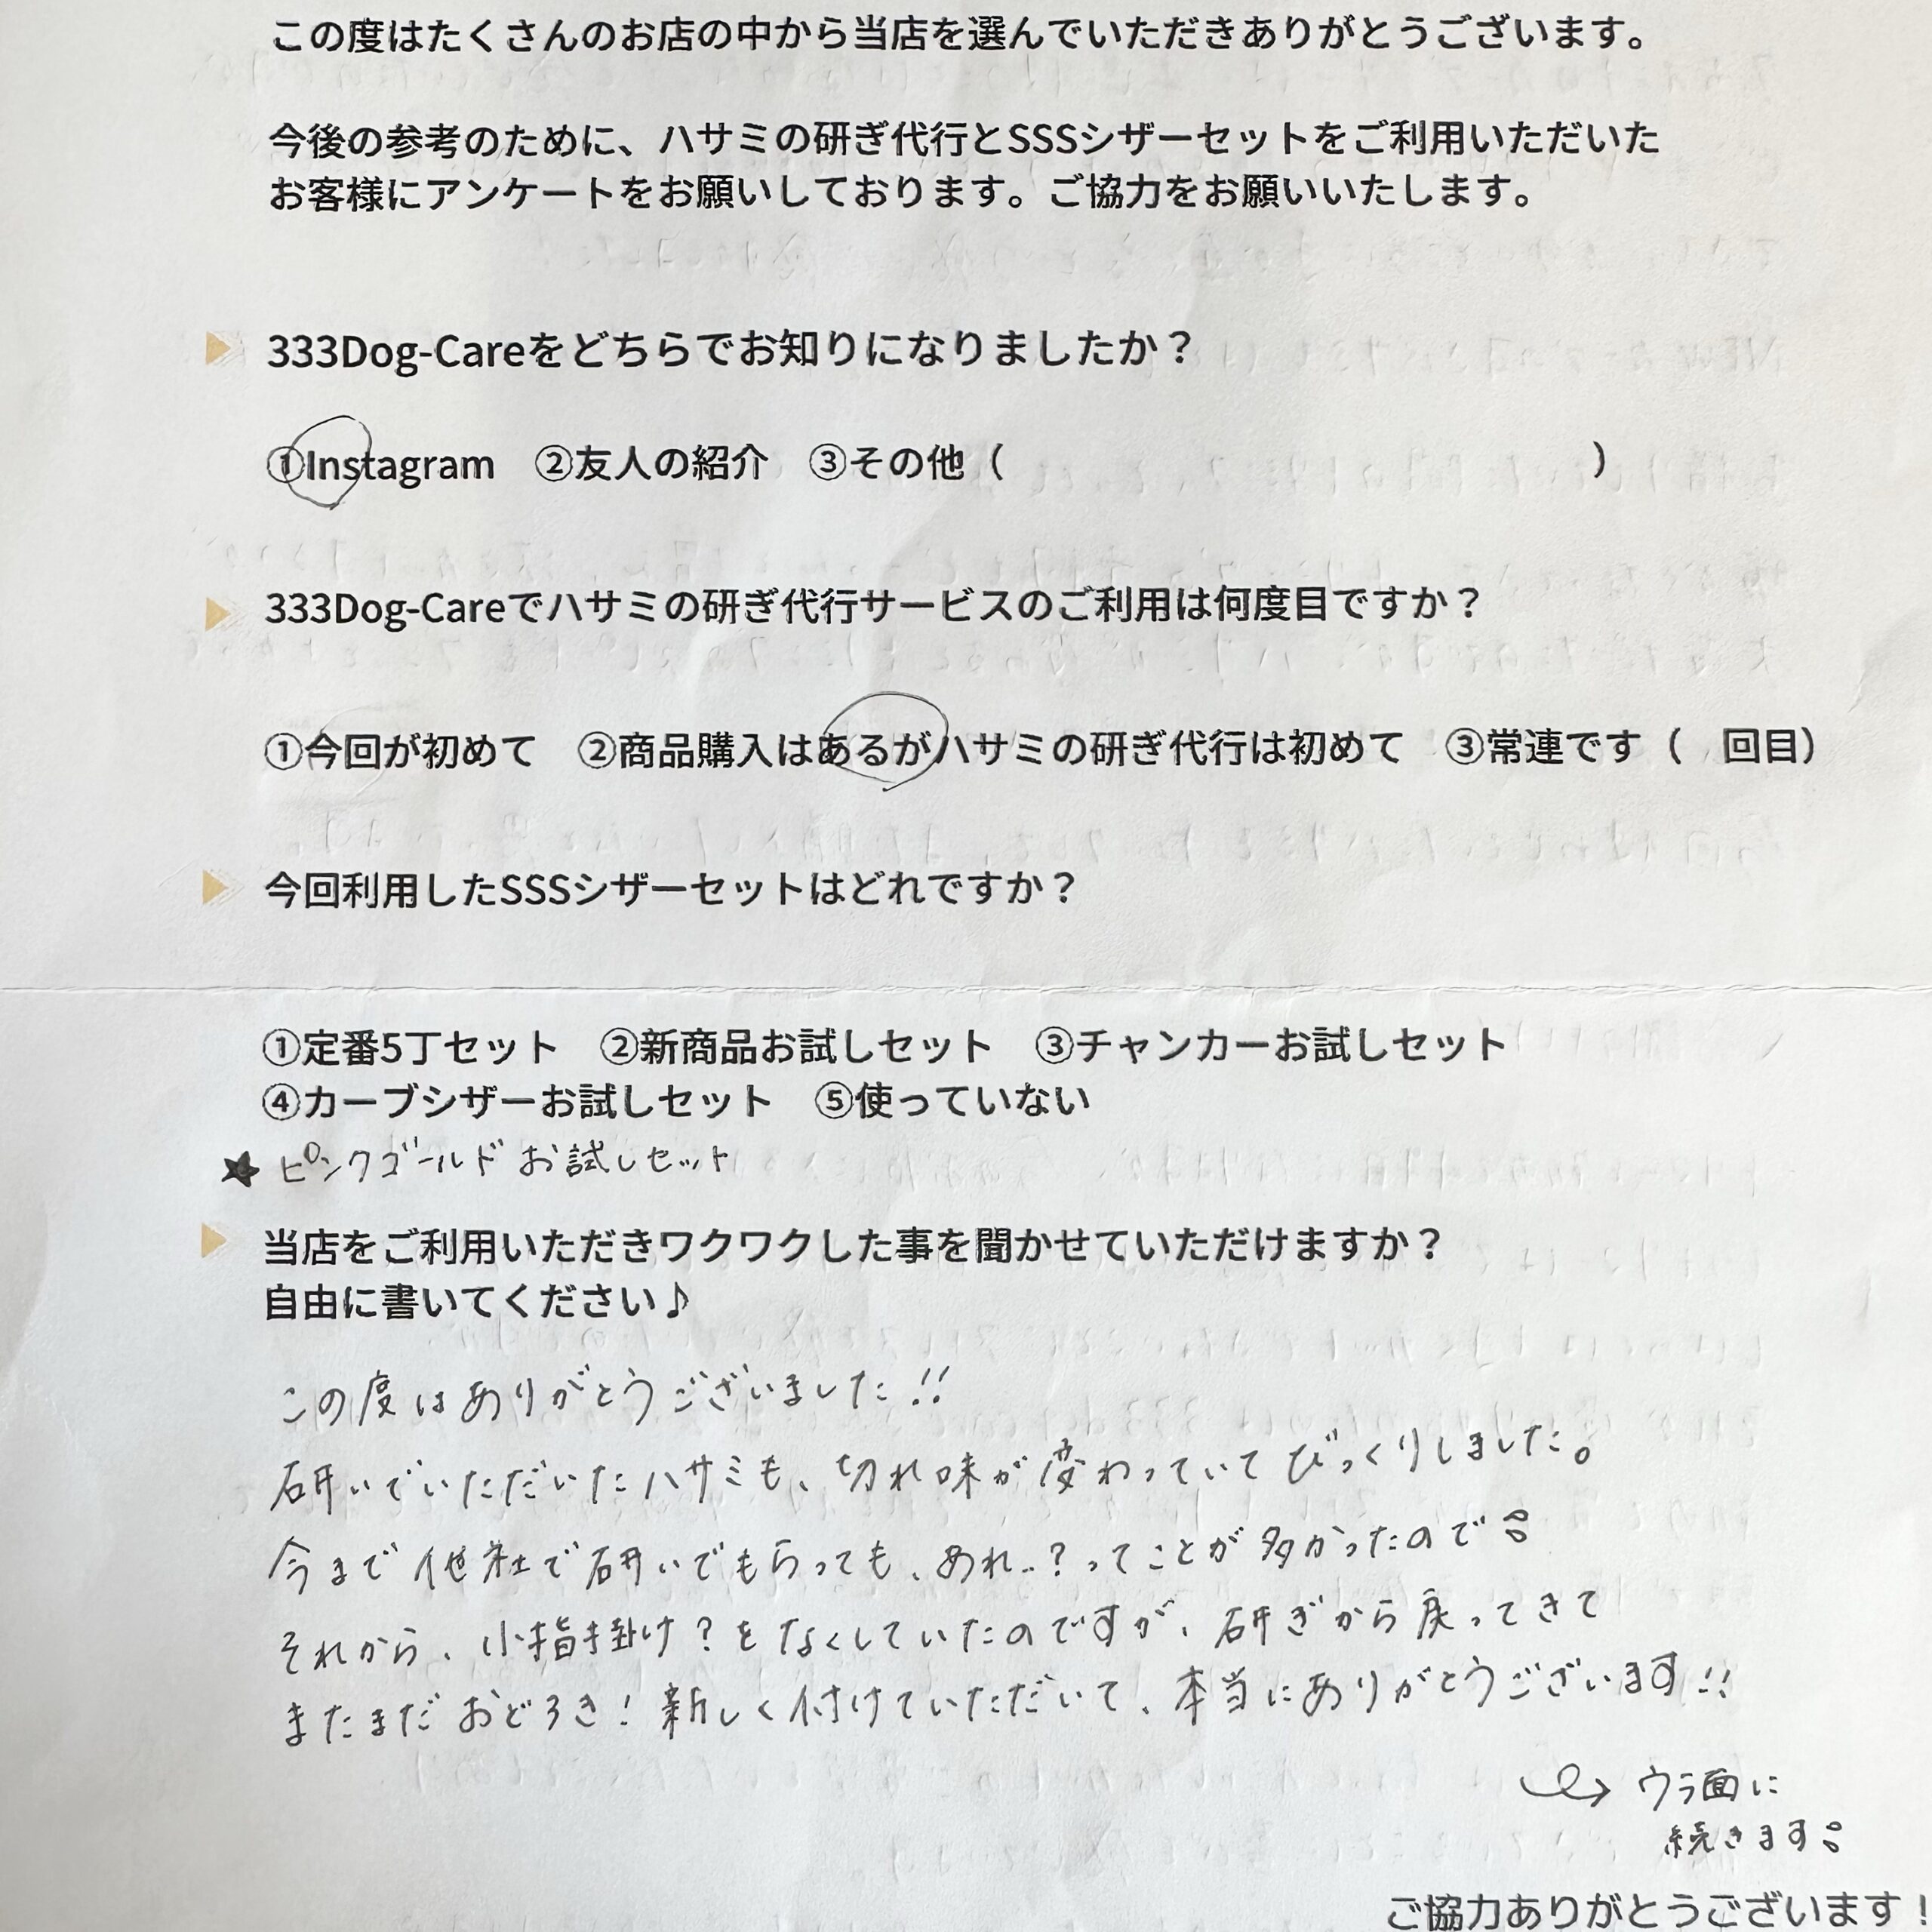 この度はたくさんのお店の中から当店を選んでいただきありがとうございます。
今後の参考のために、ハサミの研ぎ代行とSSSシザーセットをご利用いただいた
お客様にアンケートをお願いしております。ご協力をお願いいたします。
333Dog-Careをどちらでお知りになりましたか？
①Instagram　②友人の紹介　③その他（　　　　　　　　　　　　　　　）
333Dog-Careでハサミの研ぎ代行サービスのご利用は何度目ですか？
①今回が初めて　②商品購入はあるがハサミの研ぎ代行は初めて　③常連です（　回目）
今回利用したSSSシザーセットはどれですか？
①定番5丁セット　②新商品お試しセット　③チャンカーお試しセット
④カーブシザーお試しセット　⑤使っていない
★ ピンクゴールド お試しセット
当店をご利用いただきワクワクした事を聞かせていただけますか？
自由に書いてください♪
この度はありがとうございました!!
研いでいただいたハサミも、切れ味が変わっていてびっくりしました。
今まで他社で研いでもらっても、あれ..？ってことが多かったので
それから、小指掛け？をなくしていたのですが、研ぎから戻ってきて
またまだおどろき！新しく付けていただいて、本当にありがとうございます!!
ウラ面に
続きます
ご協力ありがとうございます！